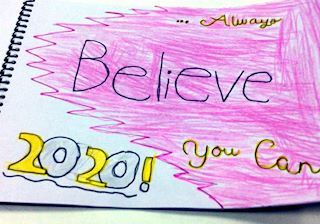 ... Always
Believe
You Can
2020!